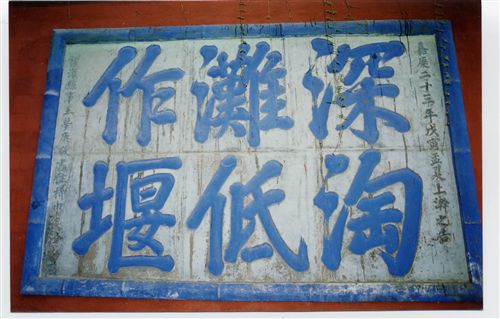 嘉慶二十三年戊寅孟夏上澣之吉
深淘
灘低
作堰